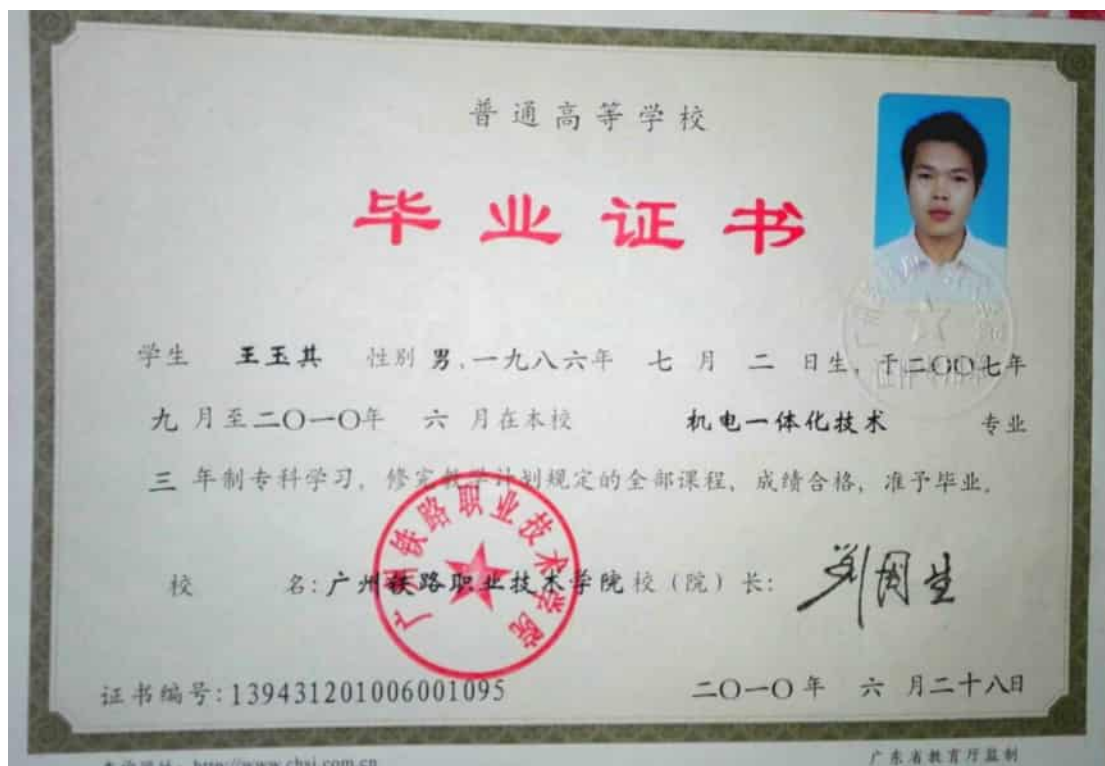 普通高等学校
毕业证书
学生 王玉其 性别 男，一九八六年 七 月 二 日生，于二〇〇七年
九 月至二〇一〇年 六 月在本校 机电一体化技术 专业
三 年制专科学习，修完教学计划规定的全部课程，成绩合格，准予毕业。
广州铁路职业技术学院
校 名：广州铁路职业技术学院 校（院）长：刘国生
证书编号：139431201006001095 二〇一〇年 六 月二十八日
http://www.chsi.com.cn 广东省教育厅监制